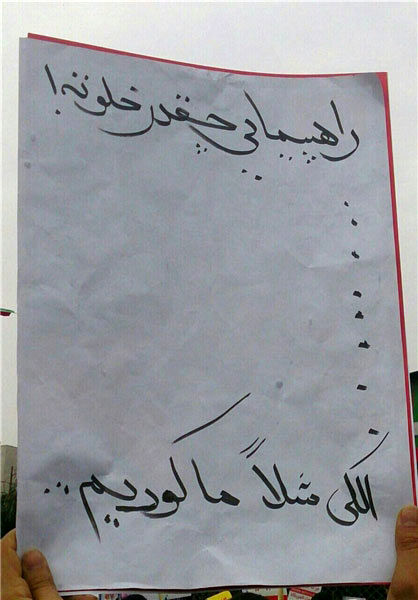 راهپیمایی چقدر خلوته!
......
الکی مثلاً ما کوریم...